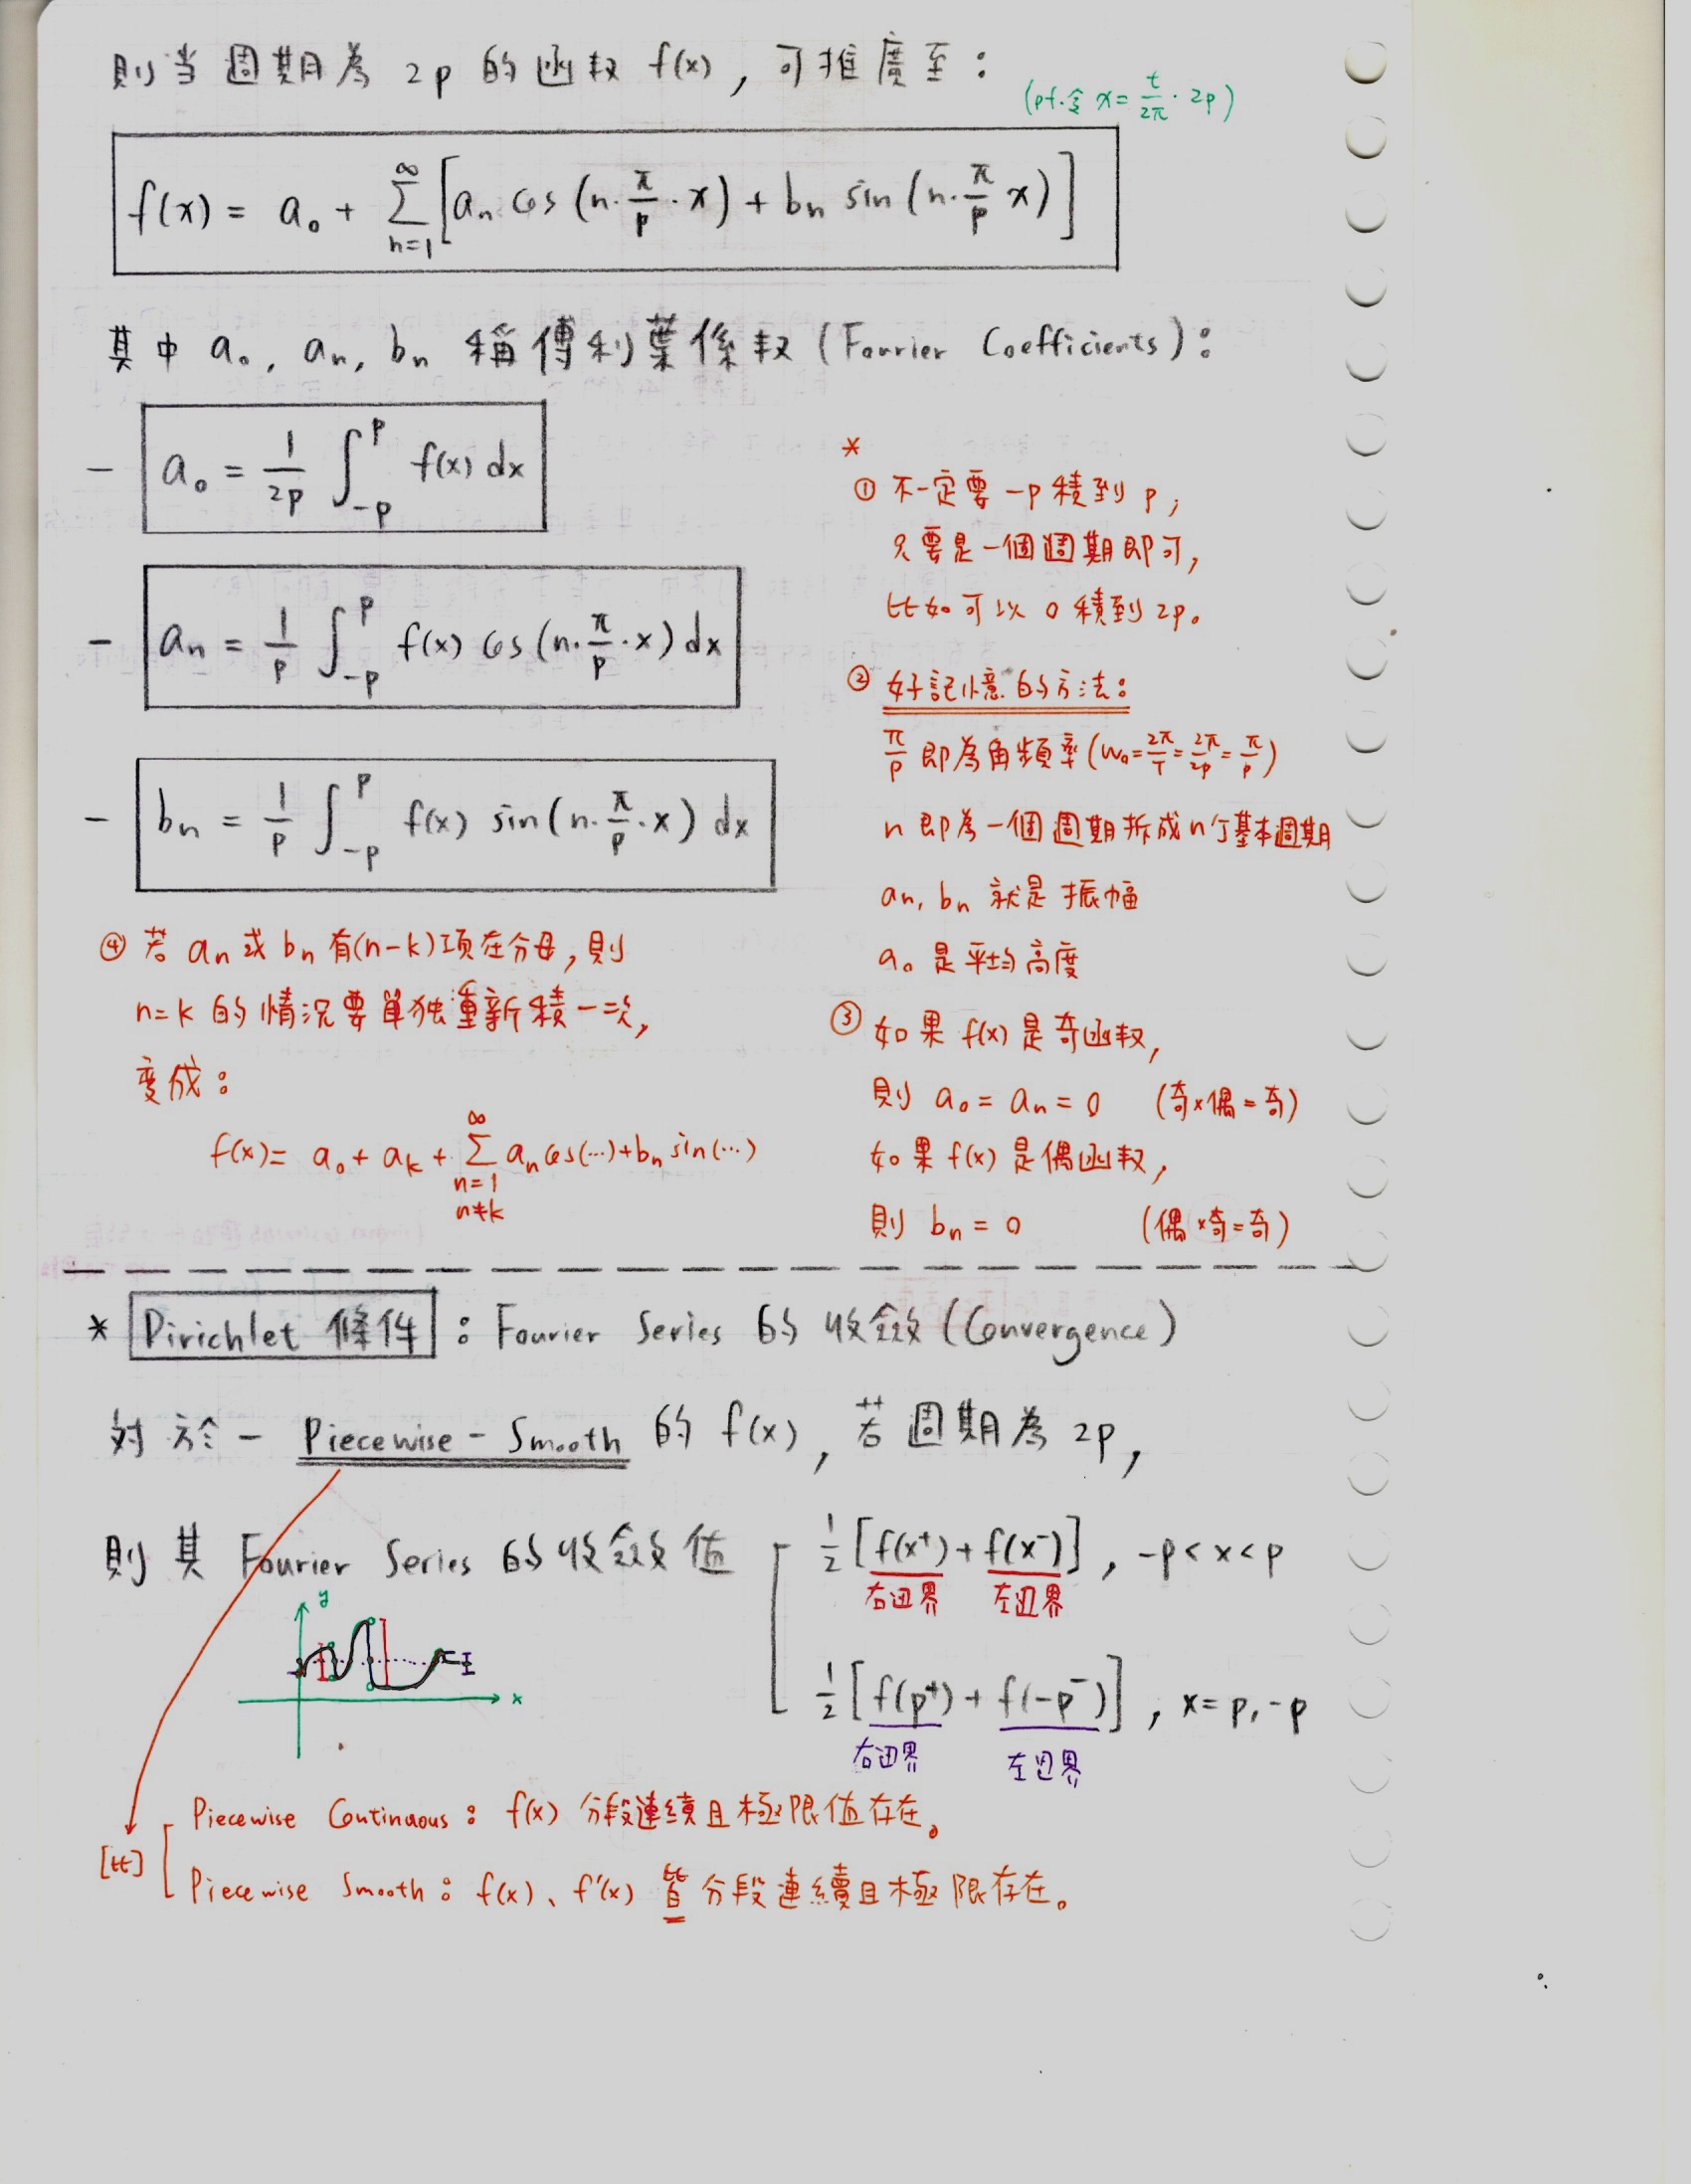 則当週期為 2p 的函数 f(x), 可推廣至:
(pf.令 x = t/2π · 2p)
f(x) = a₀ + ∑_{n=1}^{∞} [aₙ cos(n·π/p·x) + bₙ sin(n·π/p x)]
其中 a₀, aₙ, bₙ 稱傅利葉係数 (Fourier Coefficients):
- a₀ = 1/2p ∫_{-p}^{p} f(x) dx
- aₙ = 1/p ∫_{-p}^{p} f(x) cos(n·π/p·x) dx
- bₙ = 1/p ∫_{-p}^{p} f(x) sin(n·π/p·x) dx
*
① 不一定要 -p 積到 p,
只要是一個週期即可,
比如可以 0 積到 2p。
② 好記憶的方法:
π/p 即為角頻率 (w₀ = 2π/T = 2π/2p = π/p)
n 即為一個週期拆成n个基本週期
aₙ, bₙ 就是振幅
a₀ 是平均高度
③ 如果 f(x) 是奇函数,
則 a₀ = aₙ = 0 (奇×偶=奇)
如果 f(x) 是偶函数,
則 bₙ = 0 (偶×奇=奇)
④ 若 aₙ 或 bₙ 有(n-k)項在分母, 則
n=k 的情況要單独重新積一次,
変成:
f(x) = a₀ + aₖ + ∑_{n=1, n≠k}^{∞} aₙ cos(…) + bₙ sin(…)
* Dirichlet 條件 : Fourier Series 的收斂 (Convergence)
対於一 Piecewise - Smooth 的 f(x), 若週期為 2p,
則其 Fourier Series 的收斂值
1/2 [f(x⁺) + f(x⁻)], -p < x < p
右边界 左边界
1/2 [f(p⁺) + f(-p⁻)], x = p, -p
右边界 左边界
y
x
Piecewise Continuous : f(x) 分段連續且極限值存在。
[比]
Piecewise Smooth : f(x)、f'(x) 皆分段連續且極限存在。